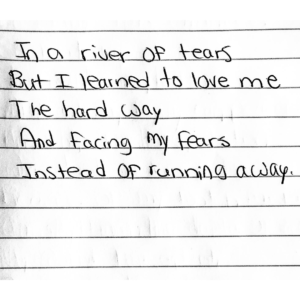 In a river of tears
But I learned to love me
The hard way
And facing my fears
Instead of running away.